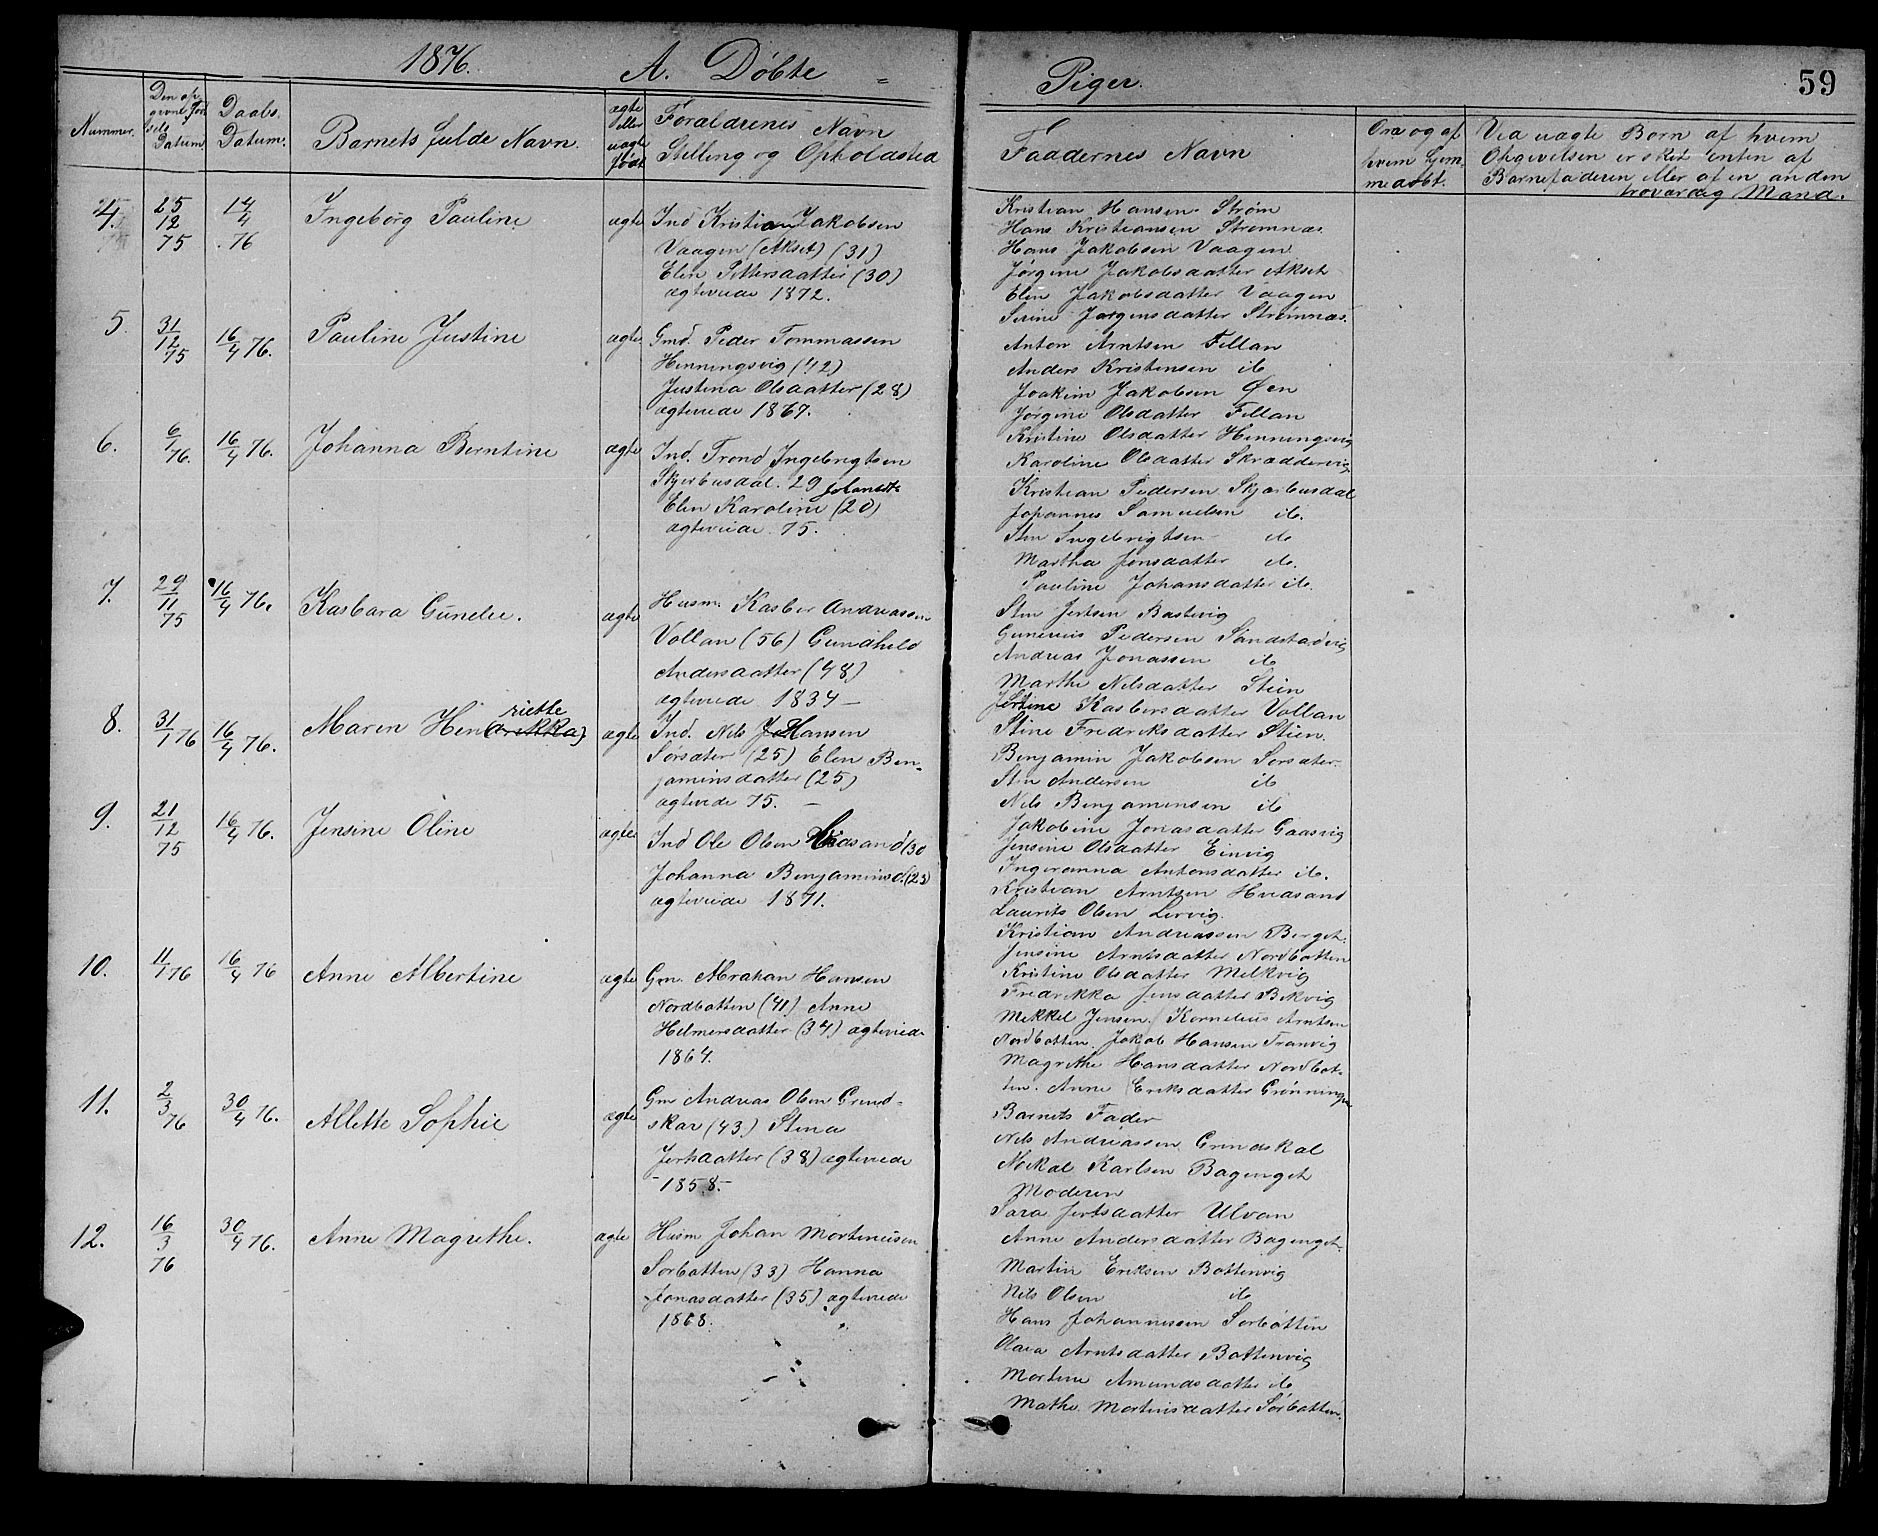 1876. A. Døbte = Piger. 59
Nummer.
Den op-
givne Fød
sels
Datum
Daabs
Datum.
Barnets fulde Navn.
ægte
eller
uægte
født
Forældrenes Navn
Stelling og Opholdsted
Faddernes Navn
Om og af
hvem hjem
medøbt.
Ved uægte Børn af hvem
Opgivelsen er sket enten af
Barnefaderen eller af en anden
troværdig Mand.
4. 25/12 75 14/4 76 Ingeborg Pauline ægte
Ind Kristian Jakobsen
Vaagen (Akset) (31)
Elen Pettersdatter (30)
ægteviede 1872.
Kristian Hansen Strøm
Hans Kristiansen Strømnæs
Hans Jakobsen Vaagen
Jørgine Jakobsdatter Akset
Elen Jakobsdatter Vaagen
Serine Jørgensdatter Strømnæs.
5. 31/12 75 16/4 76. Pauline Justine ægte
Gmd. Peder Tommassen
Henningsvig (42)
Justina Olsdatter (28)
ægteviede 1867.
Anton Arntsen Fillan
Anders Kristensen ib
Joakim Jakobsen Øen
Jørgine Olsdatter Fillan
Kristine Olsdatter Henningsvig
Karoline Olsdatter Skræddervig
6. 6/1 76. 16/4 76. Johanna Berntine ægte
Ind. Trond Ingebrigtsen
Skjerbusdal. 29 Johansdt
Elen Karoline (20)
ægteviede 75.
Kristian Pedersen Skjærbusdal
Johannes Samuelsen ib.
Sten Ingebrigtsen ib
Martha Jonsdatter ib.
Pauline Johansdatter ib.
7. 29/11 75 16/4 76. Kasbara Gunelie. ægte
Husm. Kasber Andreassen
Vollan (56) Gundhild
Andersdatter (48)
ægteviede 1834 —
Sten Jertsen Bastvig
Gunerius Pedersen Sandstadvig
Andreas Jonassen ib
Marthe Nilsdatter Stien
Jertine Kasbersdatter Vollan
Stine Fredriksdatter Stien.
8. 31/1 76 16/4 76. Maren Hen(drikka) riette ægte
Ind. Nils Johansen
Sørsæter (25) Elen Ben-
jaminsdatter (25)
ægteviede 75. —
Benjamin Jakobsen Sørsæter
Sten Andersen ib
Nils Benjaminsen ib
Jakobine Jonasdatter Gaasvig
Jensine Olsdatter Einvig
Ingeranna Antonsdatter ib.
9. 21/12 75 16/4 76. Jensine Oline ægte
Ind Ole Olsen Hvidsand (30
Johanna Benjaminsd. (23)
ægteviede 1871.
Kristian Arntsen Hvidsand
Laurits Olsen Lervig.
Kristian Andreassen Berget.
Jensine Arntsdatter Nordbotten
Kristine Olsdatter Melkvig
Fredrikka Jensdatter Bekvig
10. 11/1 76 16/4 76 Anne Albertine ægte
Gm. Abrahan Hansen
Nordbotten (41) Anne
Helmersdatter (34) ægteviede
1864.
Mekkel Jensen. Kornelius Arntsen
Nordbotten. Jakob Hansen Tranvig
Magrethe Hansdatter Nordbot-
ten. Anne Eriksdatter Grønningen
11. 2/3 76 30/4 76. Allette Sophie ægte
Gm Andreas Olsen Grend-
skar (43) Stina
Jertsdatter (38) ægteviede
1858.
Barnets Fader
Nils Andreassen Grindskal
Nekal Karlsen Bagenget
Moderen
Sara Jertsdatter Ulvan
Anne Andersdatter Bagenget
12. 16/3 76 30/4 76. Anne Magrethe. ægte
Husm Johan Mortineusen
Sørbotten (33) Hanna
Jonasdatter (35) ægteviede
1868.
Martin Eriksen Bottenvig
Nils Olsen ib
Hans Johannessen Sørbotten
Olava Arntsdatter Bottenvig
Mortine Amundsdatter ib
Mathe Mortinsdatter Sørbotten.